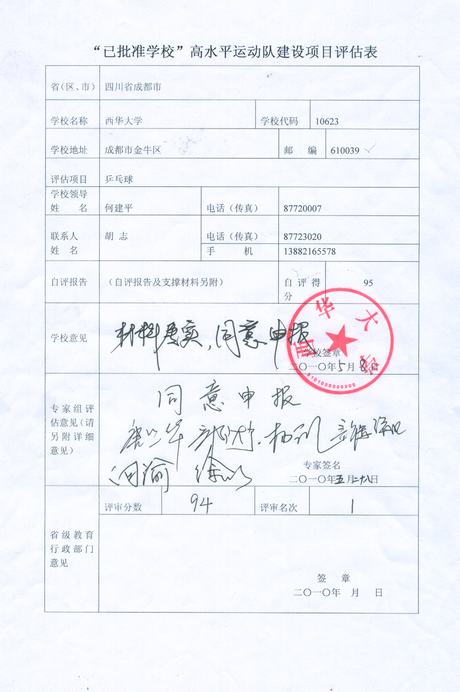 “已批准学校”高水平运动队建设项目评估表
省（区、市） 四川省成都市
学校名称 西华大学 学校代码 10623
学校地址 成都市金牛区 邮 编 610039
评估项目 乒乓球
学校领导
姓 名 何建平 电话（传真） 87720007
联系人 胡 志 电话（传真） 87723020
姓 名 手 机 13882165578
自评报告 （自评报告及支撑材料另附） 自 评 得 95
分
学校意见 材料属实，同意申报
学校签章
二〇一〇年5月8日
西华大学
专家组评
估意见（请
另附详细
意见）
同意申报
专家签名
二〇一〇年五月二十八日
评审分数 94 评审名次 1
省级教育
行政部门
意见
签 章
二〇一〇年 月 日